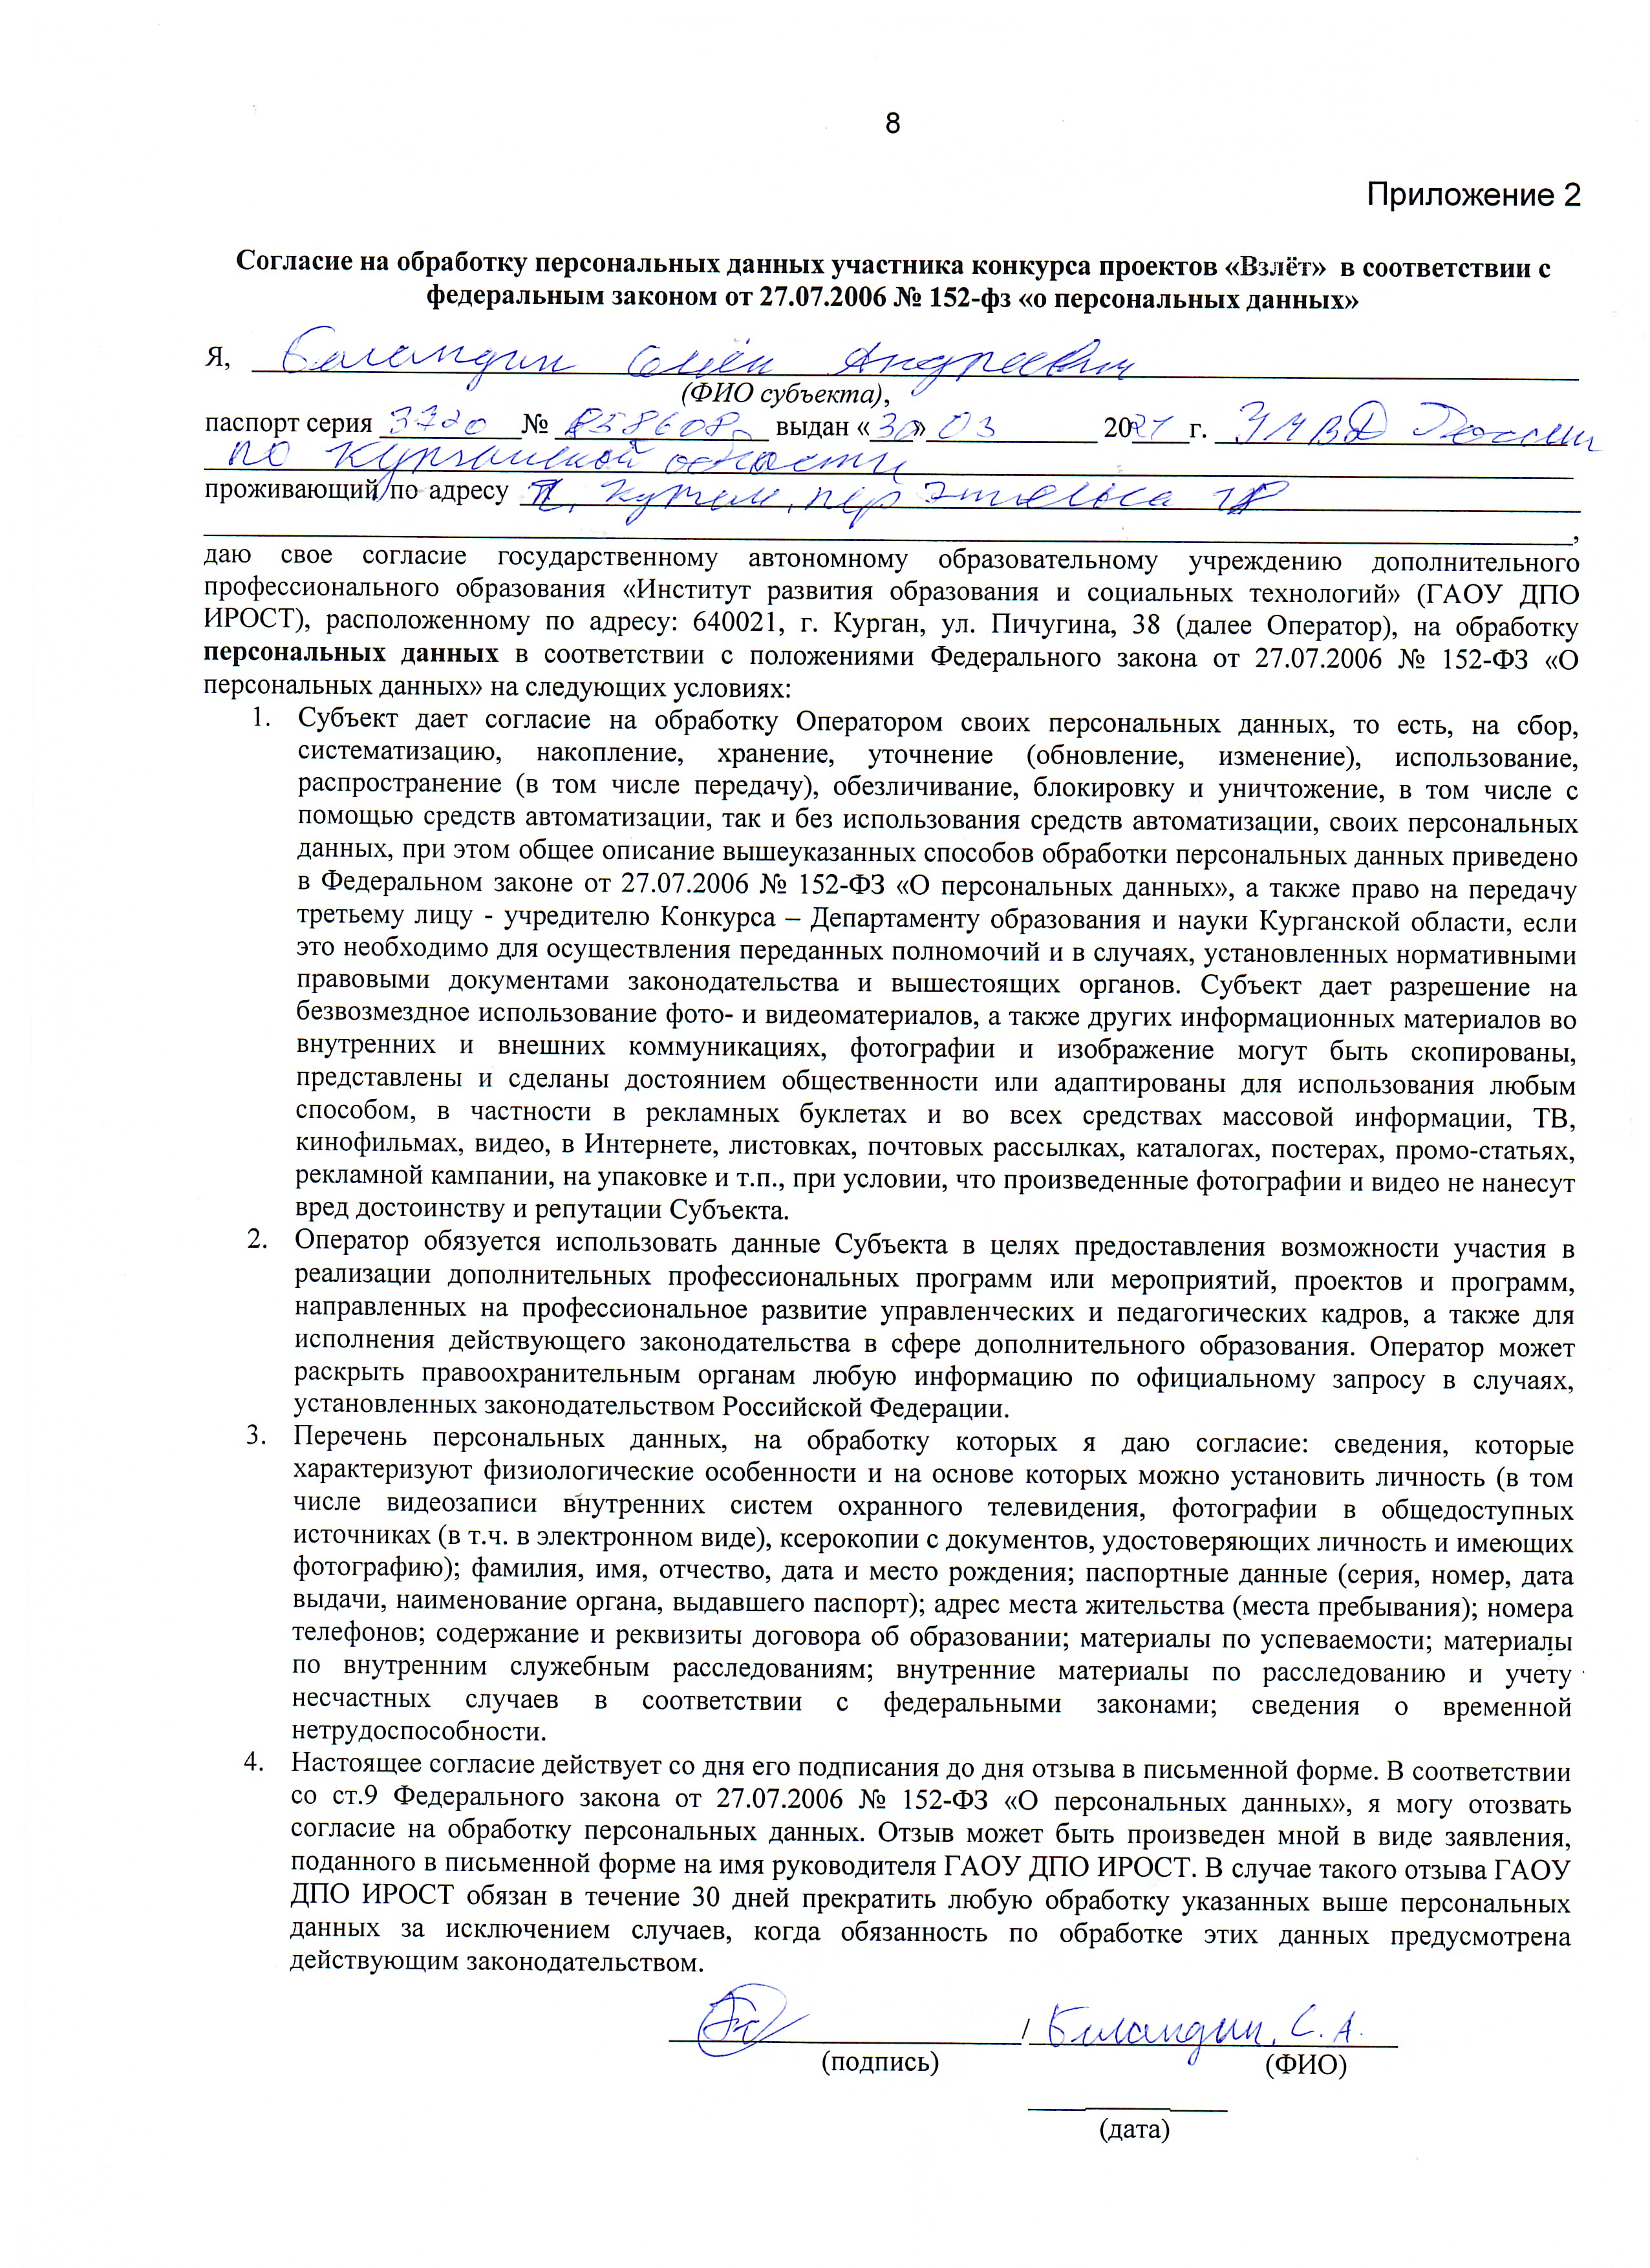 8
Приложение 2
Согласие на обработку персональных данных участника конкурса проектов «Взлёт» в соответствии с
федеральным законом от 27.07.2006 № 152-фз «о персональных данных»
Я, Баландин Семён Андреевич
(ФИО субъекта),
паспорт серия 3720 № 858608 выдан «30» 03 2021 г. УМВД России
по Курганской области
проживающий по адресу пер Энгельса
,
даю свое согласие государственному автономному образовательному учреждению дополнительного
профессионального образования «Институт развития образования и социальных технологий» (ГАОУ ДПО
ИРОСТ), расположенному по адресу: 640021, г. Курган, ул. Пичугина, 38 (далее Оператор), на обработку
персональных данных в соответствии с положениями Федерального закона от 27.07.2006 № 152-ФЗ «О
персональных данных» на следующих условиях:
1. Субъект дает согласие на обработку Оператором своих персональных данных, то есть, на сбор,
систематизацию, накопление, хранение, уточнение (обновление, изменение), использование,
распространение (в том числе передачу), обезличивание, блокировку и уничтожение, в том числе с
помощью средств автоматизации, так и без использования средств автоматизации, своих персональных
данных, при этом общее описание вышеуказанных способов обработки персональных данных приведено
в Федеральном законе от 27.07.2006 № 152-ФЗ «О персональных данных», а также право на передачу
третьему лицу - учредителю Конкурса – Департаменту образования и науки Курганской области, если
это необходимо для осуществления переданных полномочий и в случаях, установленных нормативными
правовыми документами законодательства и вышестоящих органов. Субъект дает разрешение на
безвозмездное использование фото- и видеоматериалов, а также других информационных материалов во
внутренних и внешних коммуникациях, фотографии и изображение могут быть скопированы,
представлены и сделаны достоянием общественности или адаптированы для использования любым
способом, в частности в рекламных буклетах и во всех средствах массовой информации, ТВ,
кинофильмах, видео, в Интернете, листовках, почтовых рассылках, каталогах, постерах, промо-статьях,
рекламной кампании, на упаковке и т.п., при условии, что произведенные фотографии и видео не нанесут
вред достоинству и репутации Субъекта.
2. Оператор обязуется использовать данные Субъекта в целях предоставления возможности участия в
реализации дополнительных профессиональных программ или мероприятий, проектов и программ,
направленных на профессиональное развитие управленческих и педагогических кадров, а также для
исполнения действующего законодательства в сфере дополнительного образования. Оператор может
раскрыть правоохранительным органам любую информацию по официальному запросу в случаях,
установленных законодательством Российской Федерации.
3. Перечень персональных данных, на обработку которых я даю согласие: сведения, которые
характеризуют физиологические особенности и на основе которых можно установить личность (в том
числе видеозаписи внутренних систем охранного телевидения, фотографии в общедоступных
источниках (в т.ч. в электронном виде), ксерокопии с документов, удостоверяющих личность и имеющих
фотографию); фамилия, имя, отчество, дата и место рождения; паспортные данные (серия, номер, дата
выдачи, наименование органа, выдавшего паспорт); адрес места жительства (места пребывания); номера
телефонов; содержание и реквизиты договора об образовании; материалы по успеваемости; материалы
по внутренним служебным расследованиям; внутренние материалы по расследованию и учету
несчастных случаев в соответствии с федеральными законами; сведения о временной
нетрудоспособности.
4. Настоящее согласие действует со дня его подписания до дня отзыва в письменной форме. В соответствии
со ст.9 Федерального закона от 27.07.2006 № 152-ФЗ «О персональных данных», я могу отозвать
согласие на обработку персональных данных. Отзыв может быть произведен мной в виде заявления,
поданного в письменной форме на имя руководителя ГАОУ ДПО ИРОСТ. В случае такого отзыва ГАОУ
ДПО ИРОСТ обязан в течение 30 дней прекратить любую обработку указанных выше персональных
данных за исключением случаев, когда обязанность по обработке этих данных предусмотрена
действующим законодательством.
/ Баландин, С.А.
(подпись) (ФИО)
(дата)